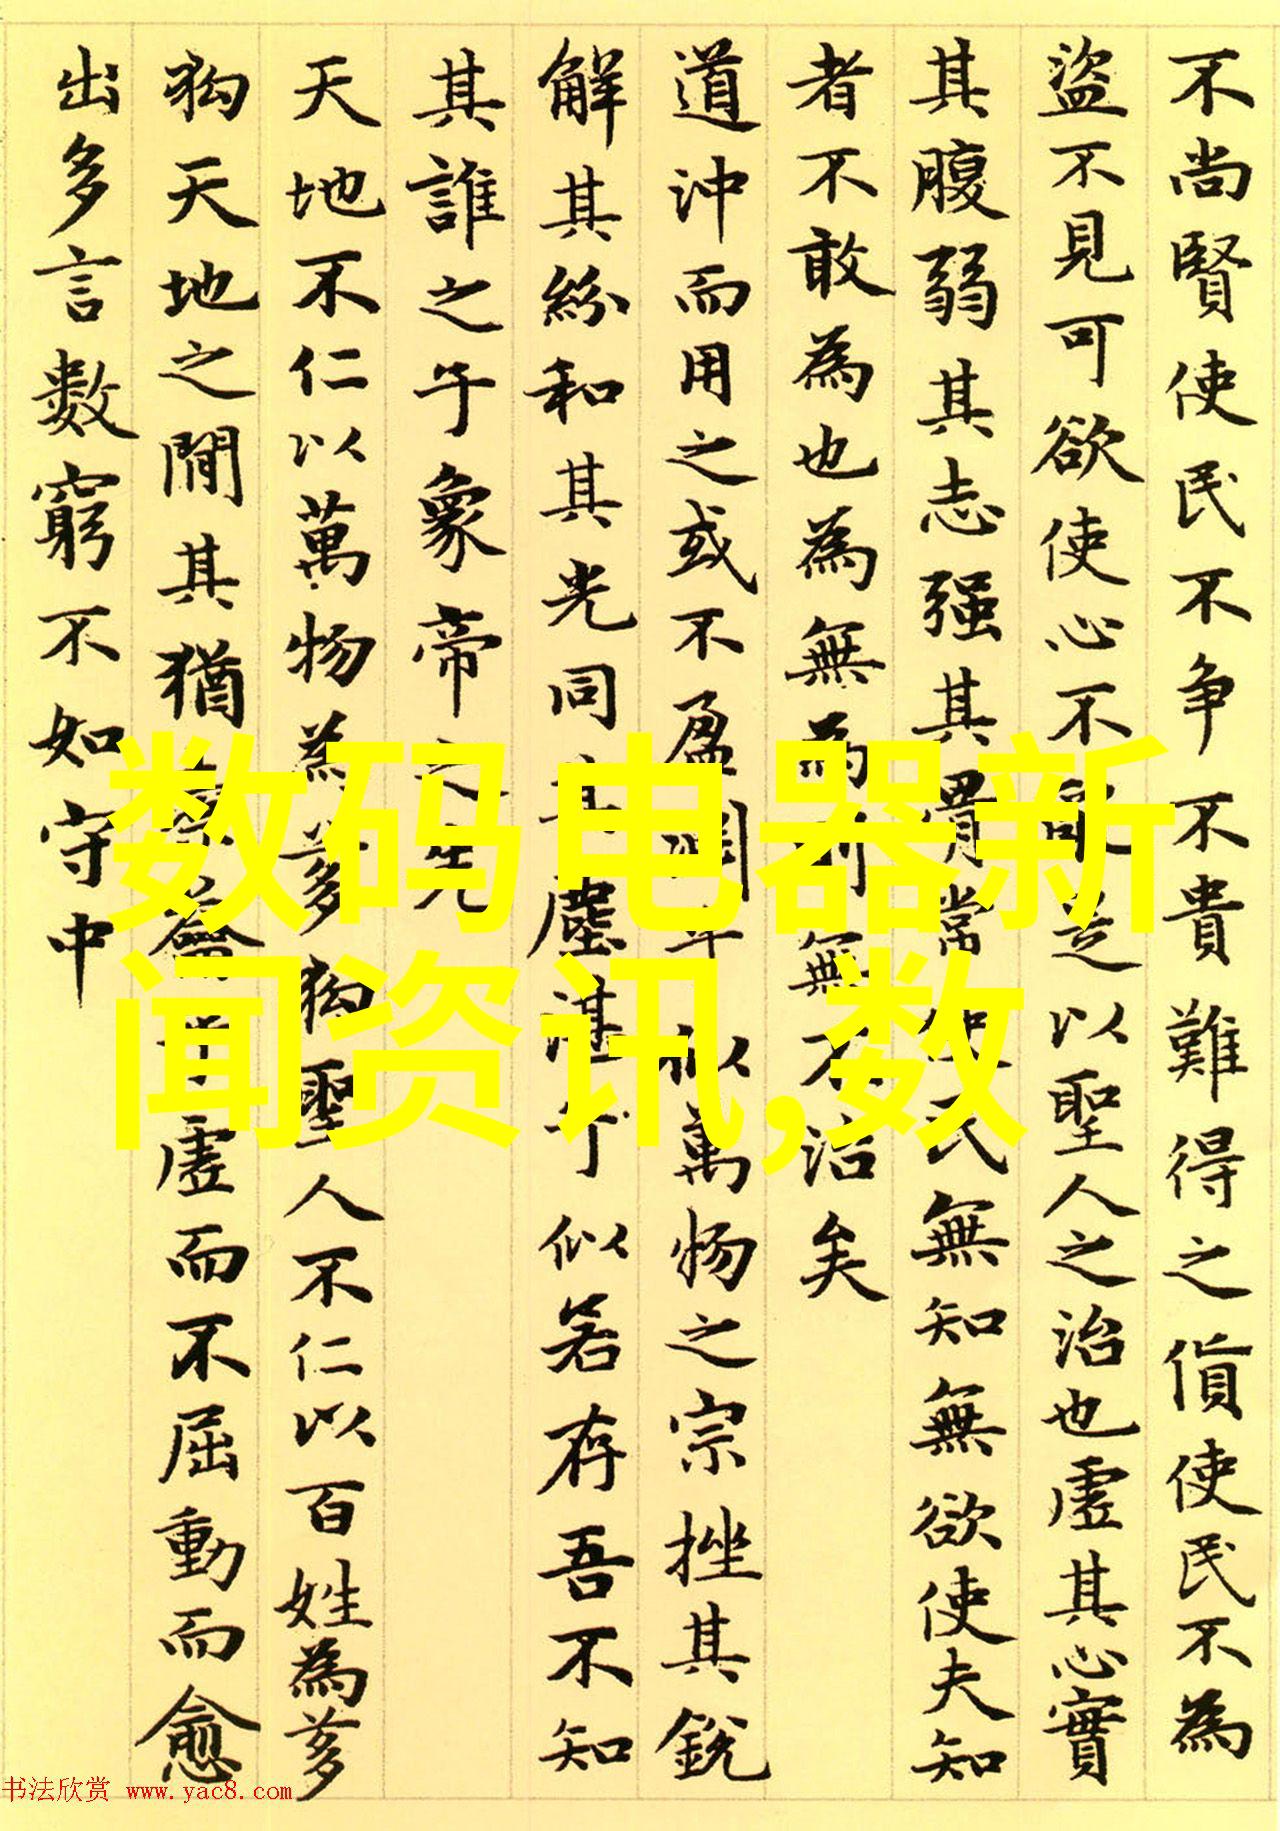 不尚賢使民不争不貴難得之貨使民不為
盜不見可欲使心不亂是以聖人之治也虛其心實
其腹弱其志强其骨常使民無知無欲使夫知
者不敢為也為無為則無不治矣
道沖而用之或不盈淵乎似萬物之宗挫其銳
解其紛和其光同其塵湛乎似若存吾不知
其誰之子象帝之先
天地不仁以萬物為芻狗聖人不仁以百姓為芻
狗天地之間其猶橐籥乎虛而不屈動而愈
出多言數窮不如守中
数码电器新
闻资讯,数
书法欣赏 www.yac8.com